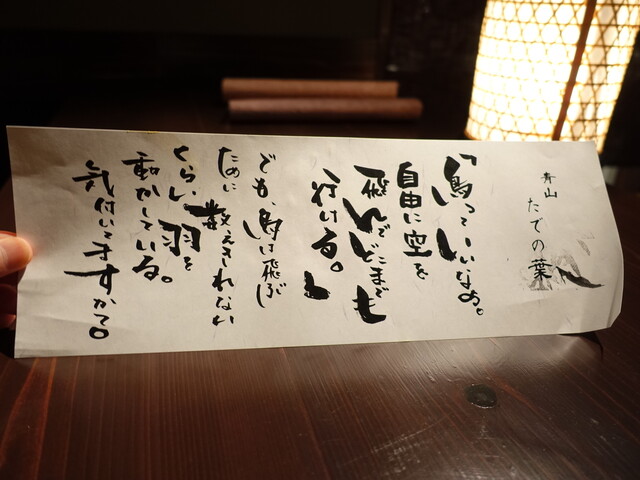 青山
たでの葉
「鳥っていいなぁ。
自由に空を
飛んでどこまでも
行ける。」
でも、鳥は飛ぶ
ために数えきれない
くらい羽を
動かしている。
気付いてますかて。